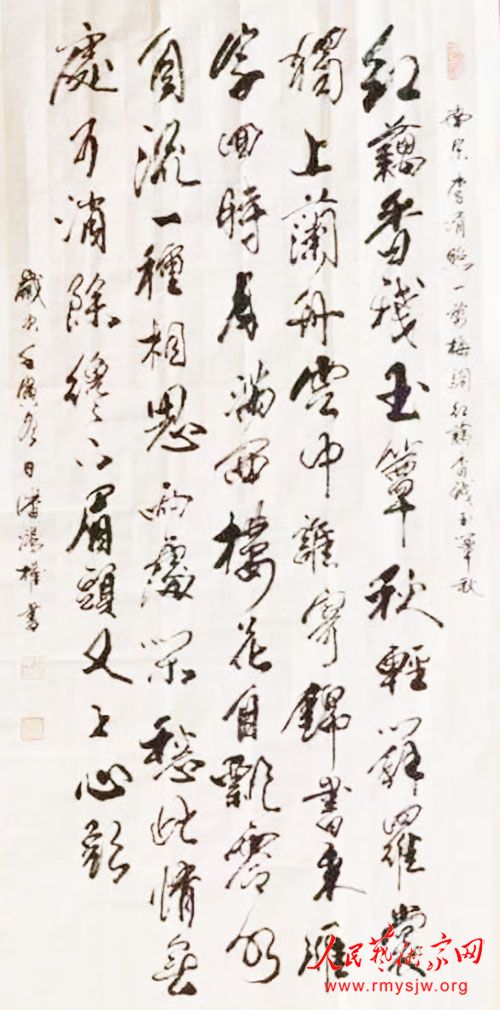 南宋李清照一剪梅詞紅藕香殘玉簟秋
紅藕香殘玉簟秋輕解羅裳
獨上蘭舟雲中誰寄錦書來雁
字回時月滿西樓花自飄零水
自流一種相思兩處閑愁此情無
處可消除纔下眉頭又上心頭
歲次壬寅日潘鴻權書
人民藝術家网
www.rmysjw.org